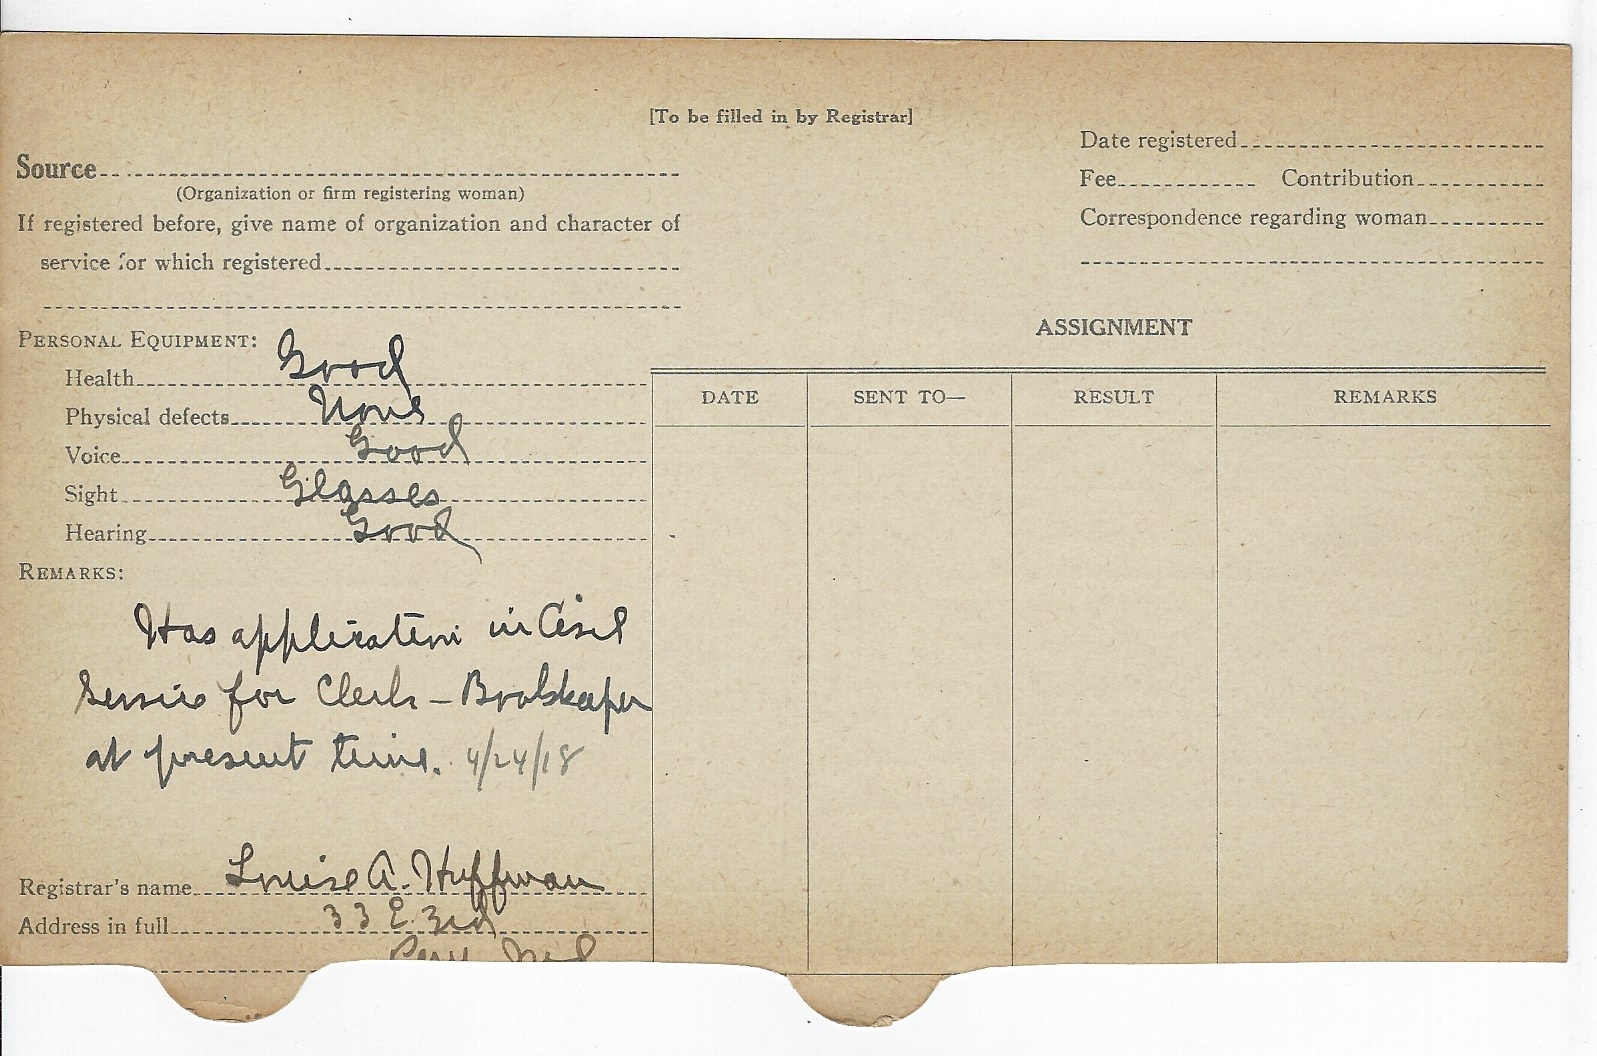 [To be filled in by Registrar]
Source
(Organization or firm registering woman)
If registered before, give name of organization and character of
service for which registered
Date registered
Fee Contribution
Correspondence regarding woman
PERSONAL EQUIPMENT:
Health Good
Physical defects None
Voice Good
Sight Glasses
Hearing Good
REMARKS:
Has application in Civil
Service for Clerk – Bookkeeper
at present time. 4/24/18
Registrar's name Louise A. Huffman
Address in full 33 E. 3rd
Peru Ind
ASSIGNMENT
DATE SENT TO— RESULT REMARKS